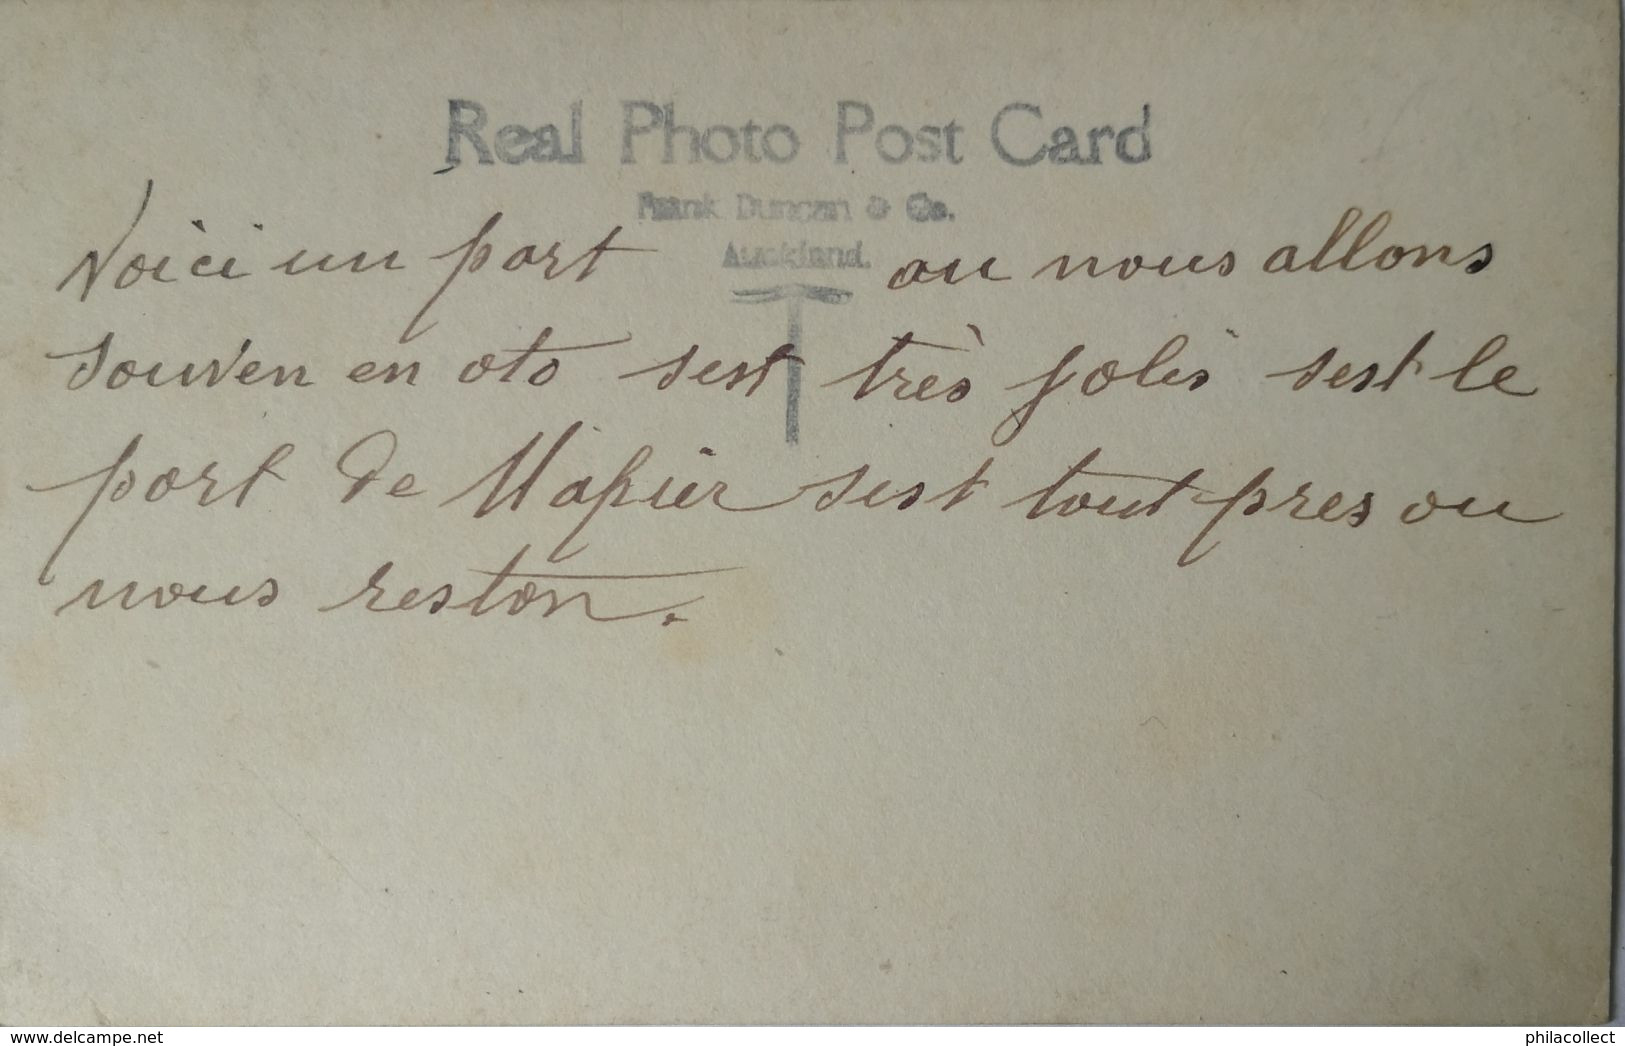 Real Photo Post Card
Frank Duncan & Co.
Auckland.
Voici un port ou nous allons
souven en oto sest très jolis sest le
port de Napier sest tout pres ou
nous reston.
philacollect